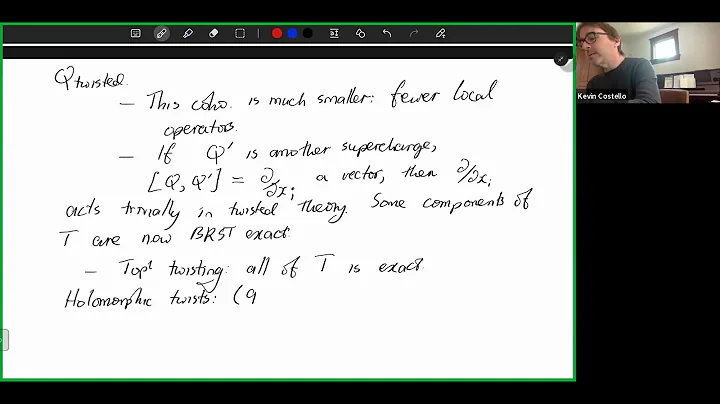 Q twisted.
– This coho. is much smaller: fewer local
operators.
– If Q' is another supercharge,
[Q, Q'] = ∂/∂xᵢ a vector, then ∂/∂xᵢ
acts trivially in twisted theory. Some components of
T are now BRST exact.
– Topˡ twisting: all of T is exact.
Holomorphic twists: (9
Kevin Costello